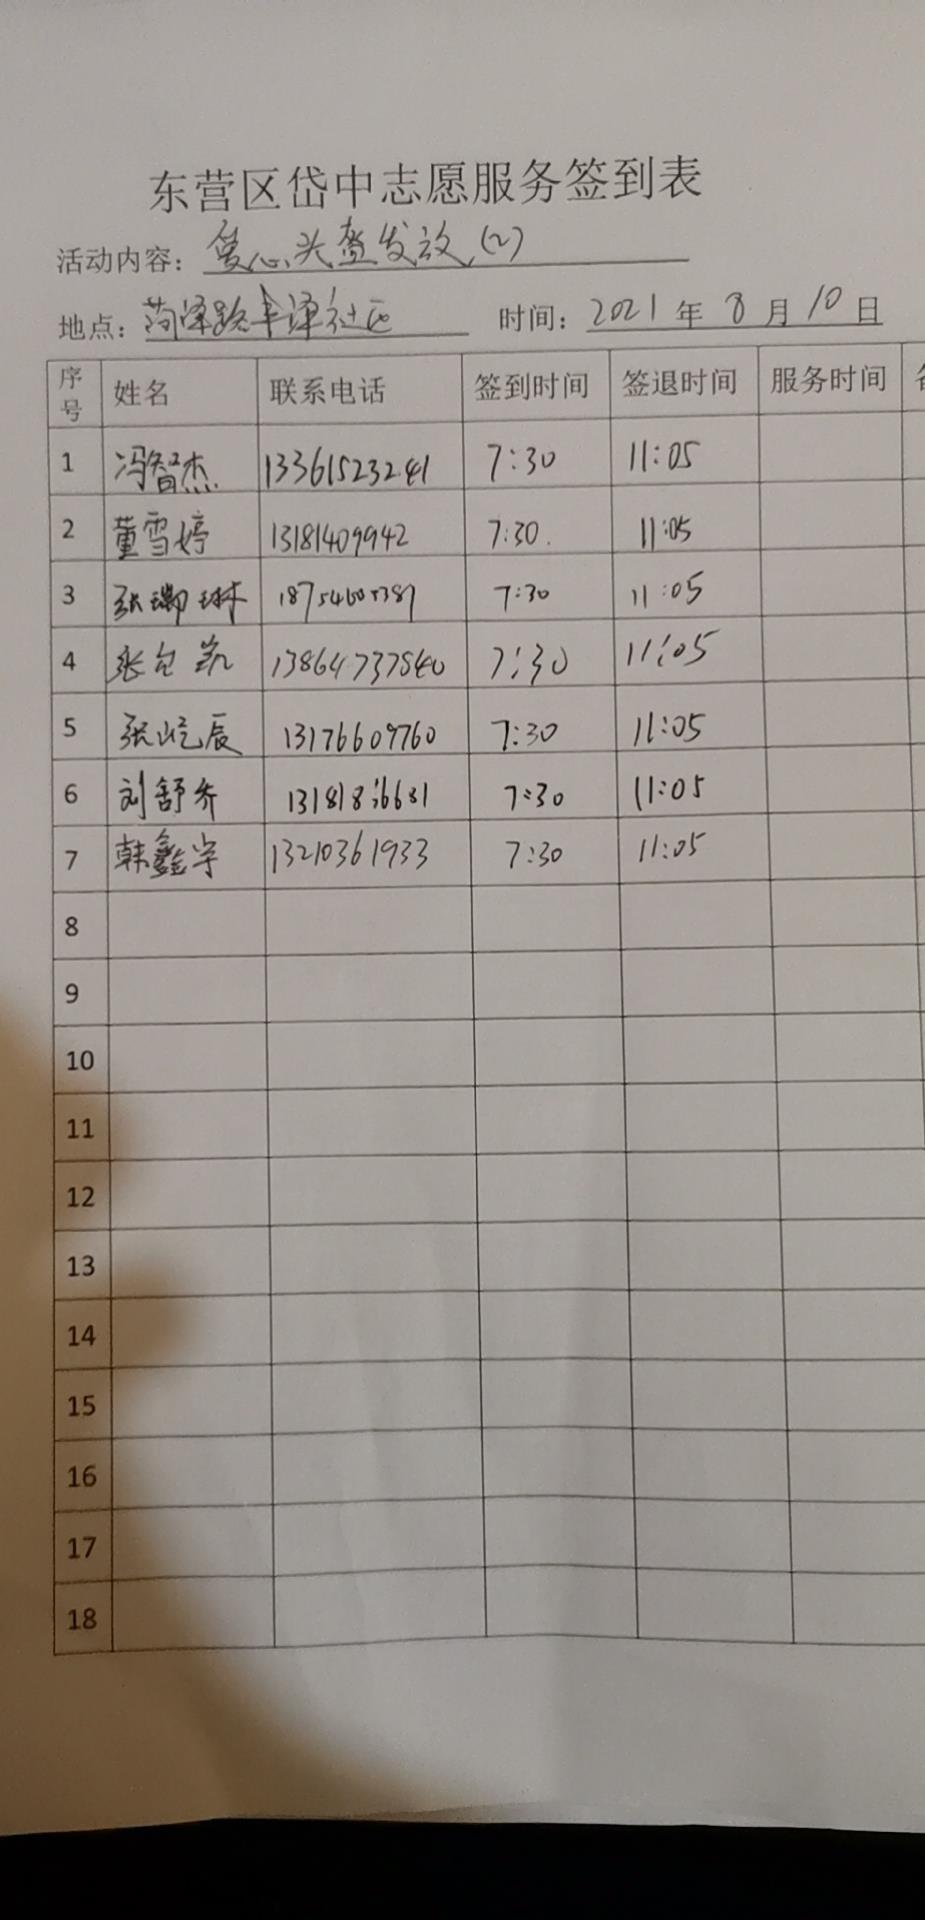 东营区岱中志愿服务签到表
活动内容：爱心头盔发放(2)
地点：菏泽路丰泽社区 时间：2021年8月10日
序号 姓名 联系电话 签到时间 签退时间 服务时间
1 冯智杰 13361523241 7:30 11:05
2 董雪婷 13181409942 7:30. 11:05
3 张瑞琳 18754605389 7:30 11:05
4 张 凯 13864737840 7:30 11:05
5 张屹辰 13176609760 7:30 11:05
6 刘舒乔 7:30 11:05
7 韩鑫宇 13210361933 7:30 11:05
8
9
10
11
12
13
14
15
16
17
18